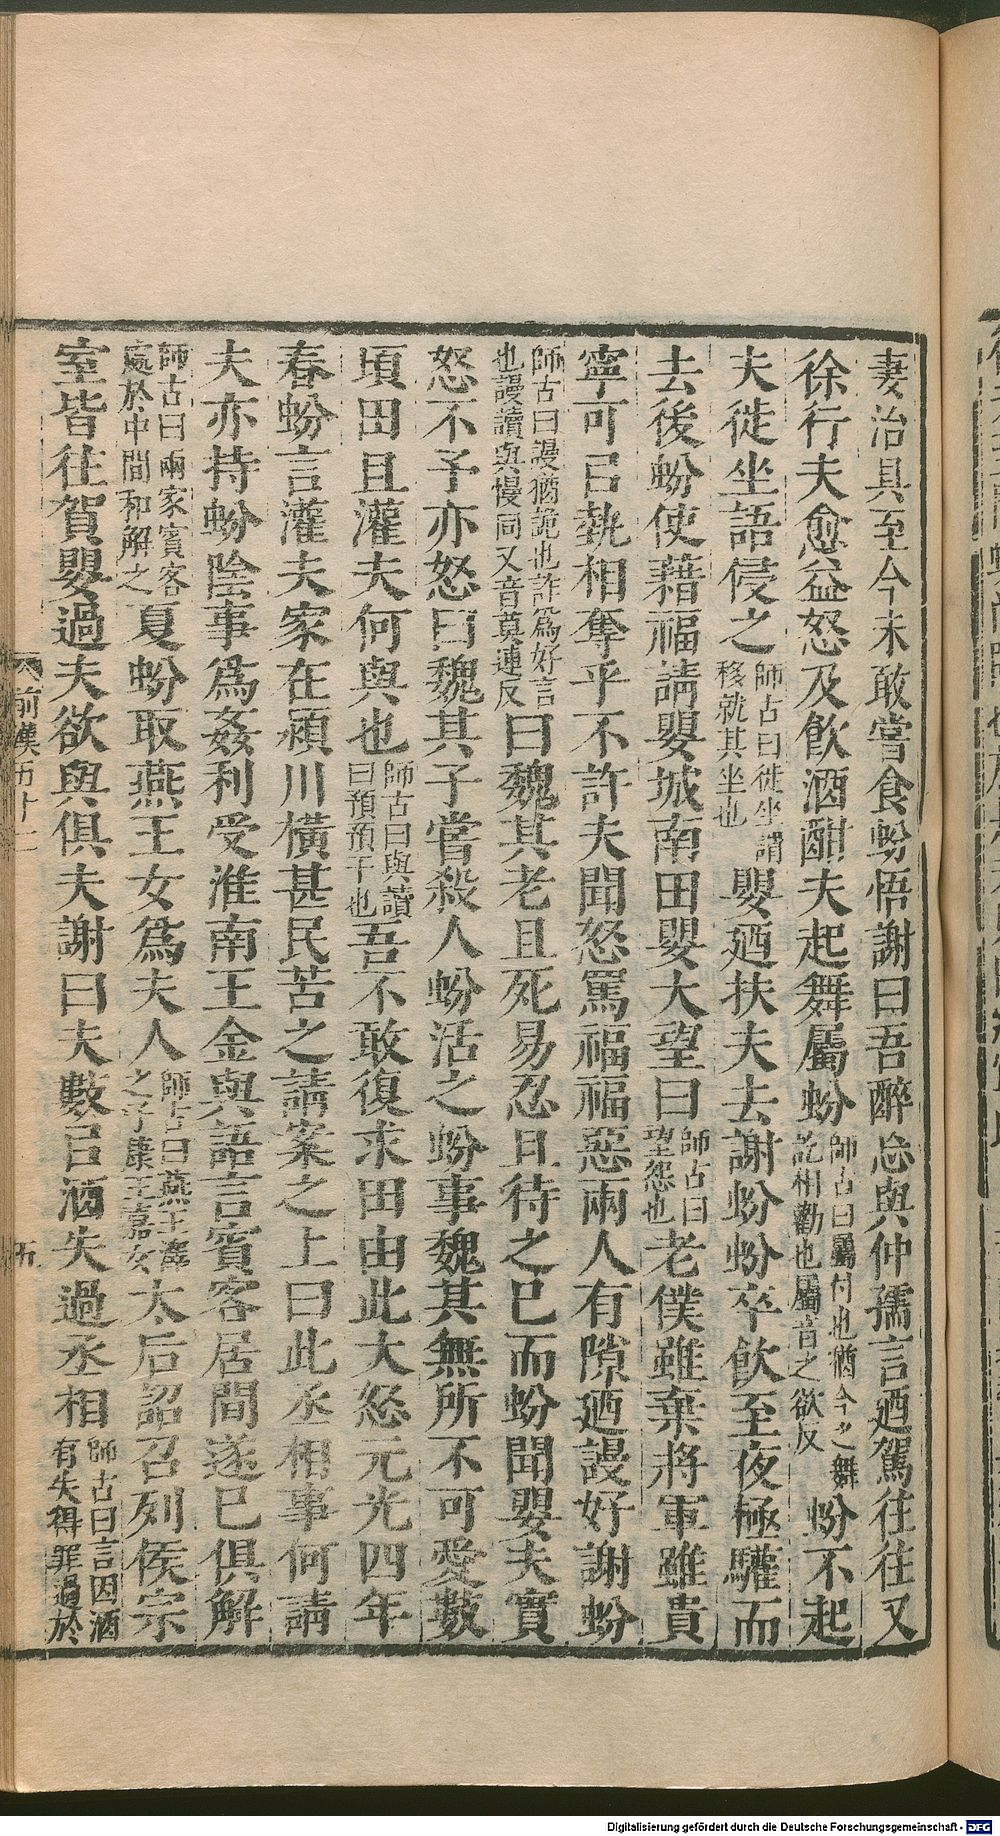 妻治具至今未敢嘗食蚡悟謝曰吾醉忘與仲孺言廼駕往往又
徐行夫愈益怒及飲酒酣夫起舞屬蚡師古曰屬付也猶今之舞訖相勸也屬音之欲反蚡不起
夫徙坐語侵之師古曰徙坐謂移就其坐也嬰廼扶夫去謝蚡蚡卒飲至夜極驩而
去後蚡使藉福請嬰城南田嬰大望曰師古曰望怨也老僕雖棄將軍雖貴
寧可㠯埶相奪乎不許夫聞怒罵福福惡兩人有隙廼謾好謝蚡
師古曰謾猶詭也詐爲好言也謾讀與慢同又音莫連反曰魏其老且死易忍且待之已而蚡聞嬰夫實
怒不予亦怒曰魏其子嘗殺人蚡活之蚡事魏其無所不可愛數
頃田且灌夫何與也師古曰與讀曰預預干也吾不敢復求田由此大怒元光四年
春蚡言灌夫家在潁川橫甚民苦之請案之上曰此丞相事何請
夫亦持蚡陰事爲姦利受淮南王金與語言賓客居間遂已俱解
師古曰兩家賓客處於中間和解之夏蚡取燕王女爲夫人師古曰燕王澤之子康王嘉女太后詔召列侯宗
室皆往賀嬰過夫欲與俱夫謝曰夫數㠯酒失過丞相師古曰言因酒有失得罪過於
前漢五十二
五
Digitalisierung gefördert durch die Deutsche Forschungsgemeinschaft - DFG